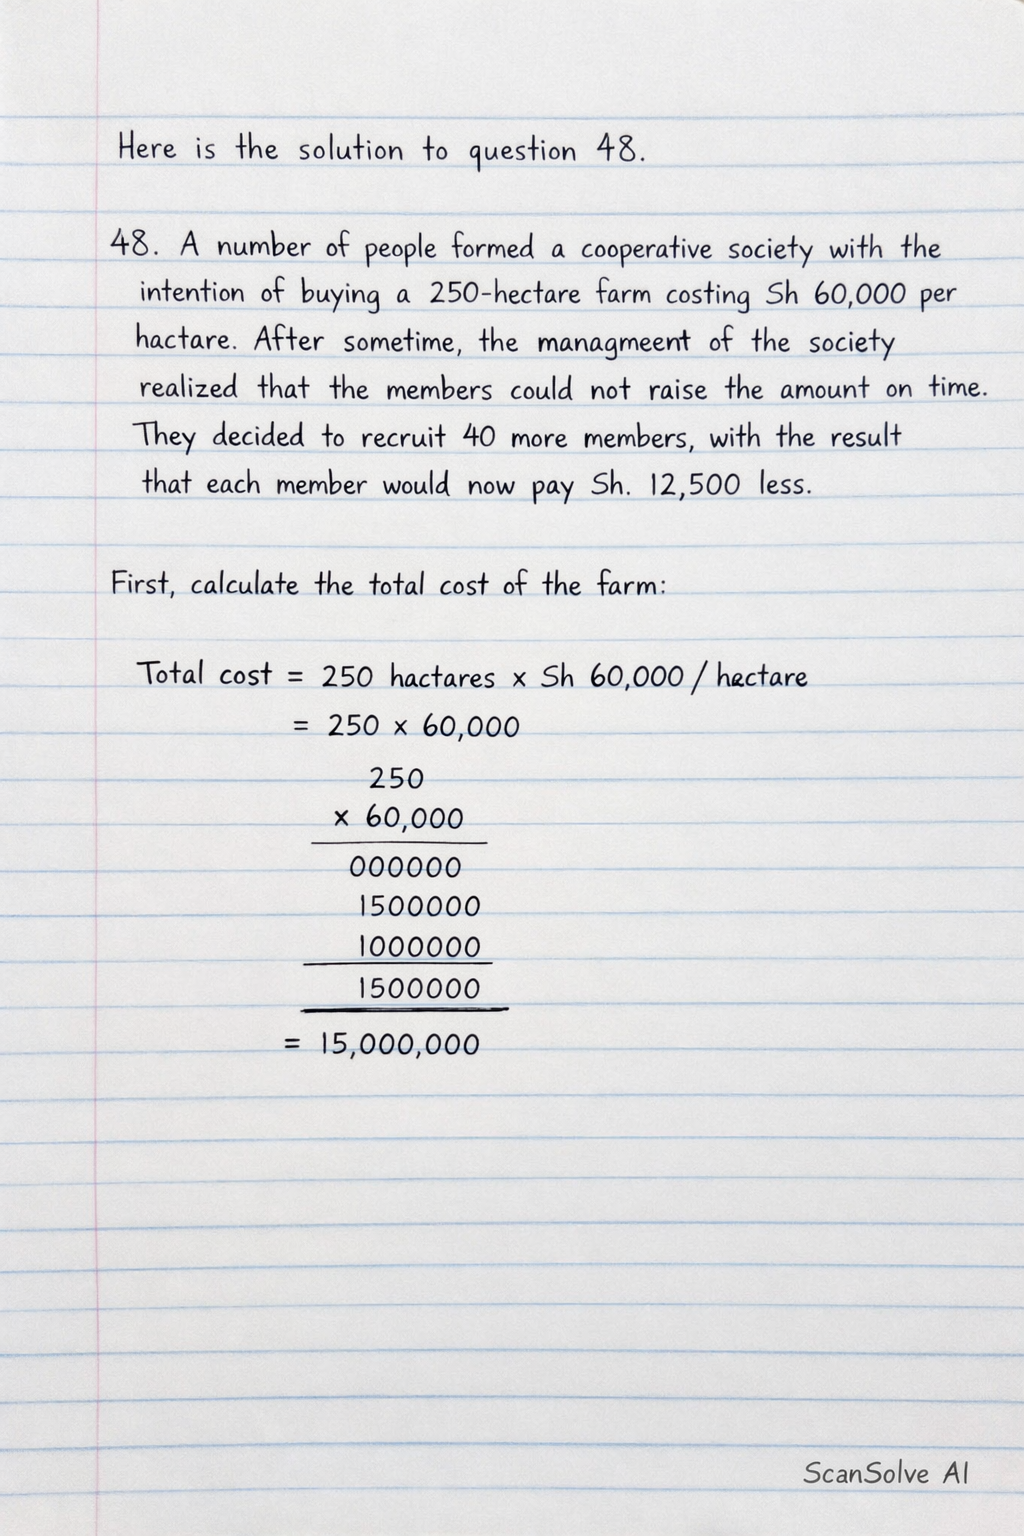 Here is the solution to question 48.
48. A number of people formed a cooperative society with the
intention of buying a 250-hectare farm costing Sh 60,000 per
hactare. After sometime, the managmeent of the society
realized that the members could not raise the amount on time.
They decided to recruit 40 more members, with the result
that each member would now pay Sh. 12,500 less.
First, calculate the total cost of the farm:
Total cost = 250 hactares x Sh 60,000 / hectare
= 250 x 60,000
250
x 60,000
000000
1500000
1000000
1500000
= 15,000,000
ScanSolve AI